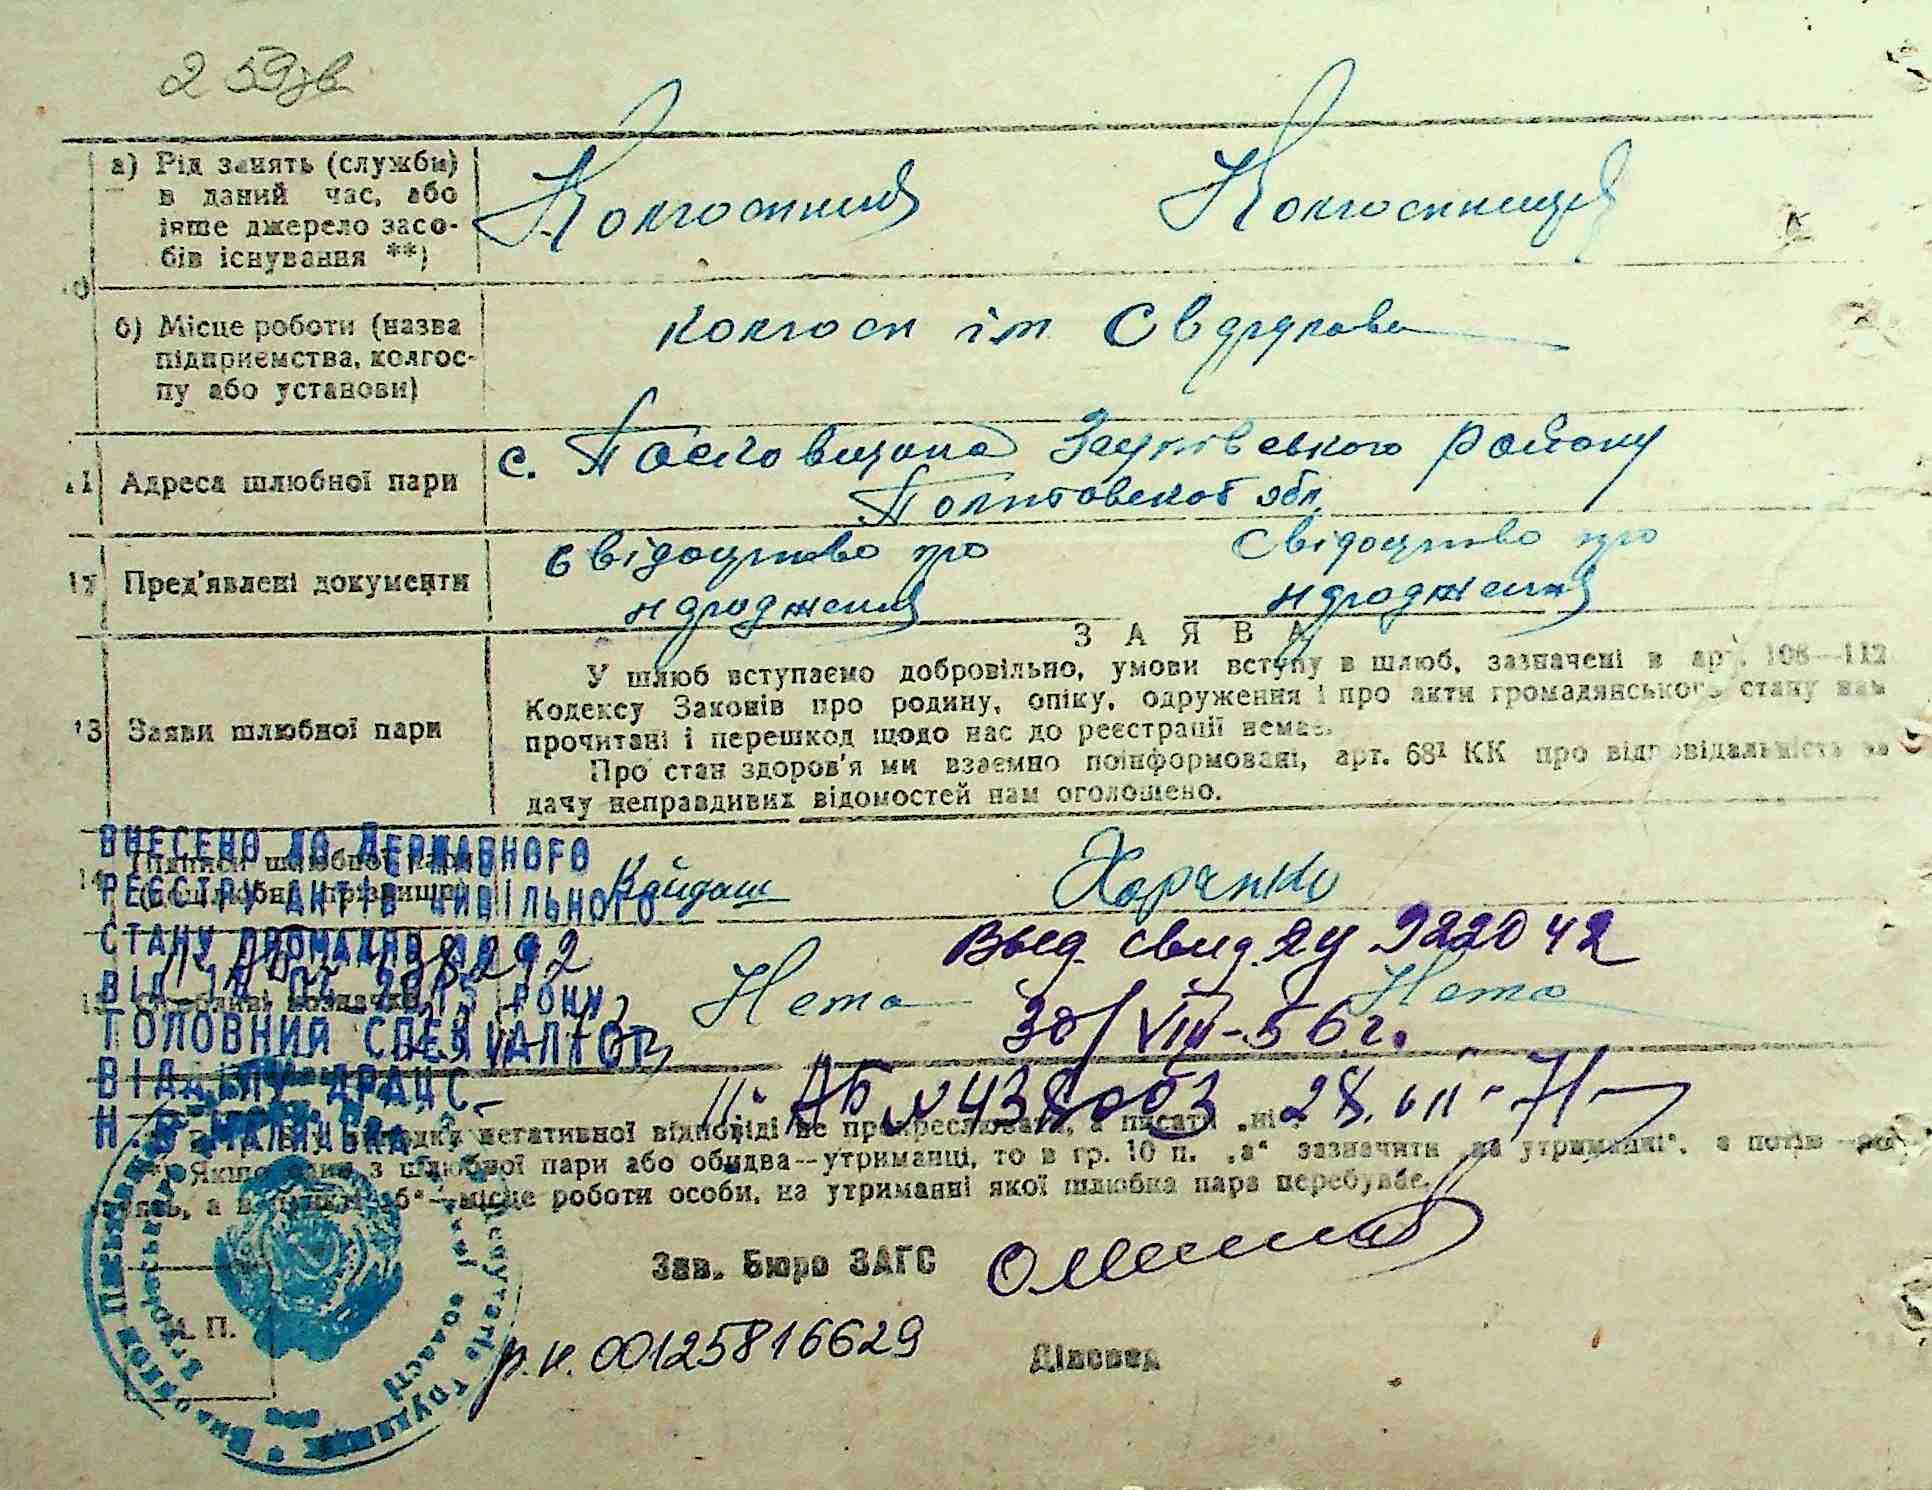 2 59зв
а) Рід занять (служби)
в даний час, або
інше джерело засо-
бів існування **)
Колгоспник Колгоспниця
10
б) Місце роботи (назва
підприємства, колгос-
пу або установи)
колгосп ім Свердлова
11 Адреса шлюбної пари
с. Пасковщина Згурівського району
Полтавської обл.
12 Пред'явлені документи
Свідоцтво про Свідоцтво про
народження народження
13 Заяви шлюбної пари
ЗАЯВА
У шлюб вступаємо добровільно, умови вступу в шлюб, зазначені в арт. 108—112
Кодексу Законів про родину, опіку, одруження і про акти громадянського стану нам
прочитані і перешкод щодо нас до реєстрації немає.
Про стан здоров'я ми взаємно поінформовані, арт. 68¹ КК про відповідальність за
дачу неправдивих відомостей нам оголошено.
14 Підписи шлюбної пари
(дошлюбні прізвища)
Кайдаш Харченко
ВНЕСЕНО ДО ДЕРЖАВНОГО
РЕЄСТРУ АКТІВ ЦИВІЛЬНОГО
СТАНУ ГРОМАДЯН
ВІД РОКУ
ГОЛОВНИЙ СПЕЦІАЛІСТ
ВІДДІЛУ ДРАЦС
Выд. свид. ЯЦ 922042
15 Нема Нема
30/VIII-56 г.
II- АБ № 438003 28.VII-71
негативної відповіді не прокреслювати, а писати „ні".
Якщо один з шлюбної пари або обидва—утриманці, то в гр. 10 п. „а" зазначити „на утриманні", а потім
а в пункті „б"—місце роботи особи, на утриманні якої шлюбна пара перебуває.
Зав. Бюро ЗАГС
М. П.
р.н. 00125816629
Діловод